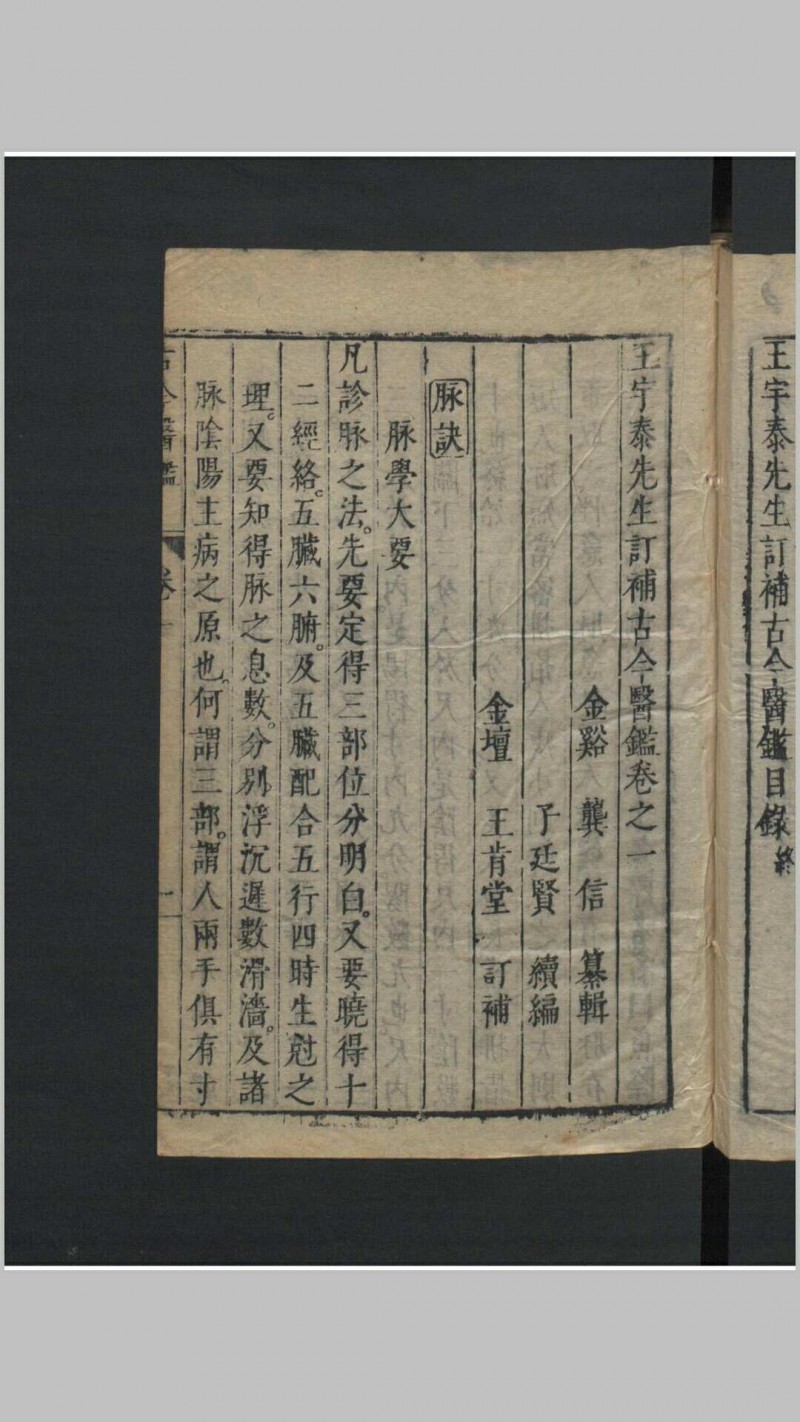 王宇泰先生訂補古今醫鑑目錄終
王宇泰先生訂補古今醫鑑卷之一
金谿 龔信 纂輯
子廷賢 續編
金壇 王肯堂 訂補
脉訣
脉學大要
凡診脉之法。先要定得三部位分明白。又要曉得十
二經絡。五臟六腑。及五臟配合五行四時生尅之
理。又要知得脉之息數。分別浮沉遲數滑濇。及諸
脉陰陽主病之原也。何謂三部。謂人兩手俱有寸
古今醫鑑 卷一 一